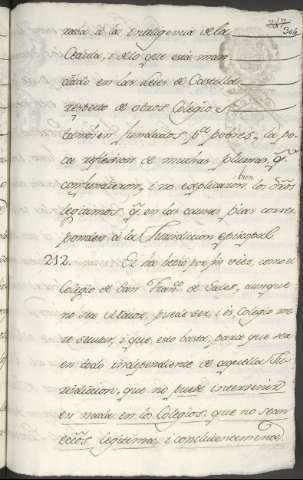 304
tada à la inteligencia de la
Cedula, i à lo que está man
dado en las Leies de Castilla
respecto de otros Colegios
tambien fundados pª pobres, la po
ca reflexion de muchas plumas, q.
confundieron, i no explicaron bien los dros
legitimos, q. en las causas pias corres
ponden à la Jurisdiccion episcopal.
212. Se ha dicho por fin vico, como el
Colegio de San Franco de Sales, aunque
no sea Claus, puede ser, i es, Colegio me
re secular, i que, esto basta, para que sea
en todo independiente de aquella Ju
risdiccion, que no puede intervenir
en nada en los Colegios, que no sean
eccos. legitima, i concluientemente